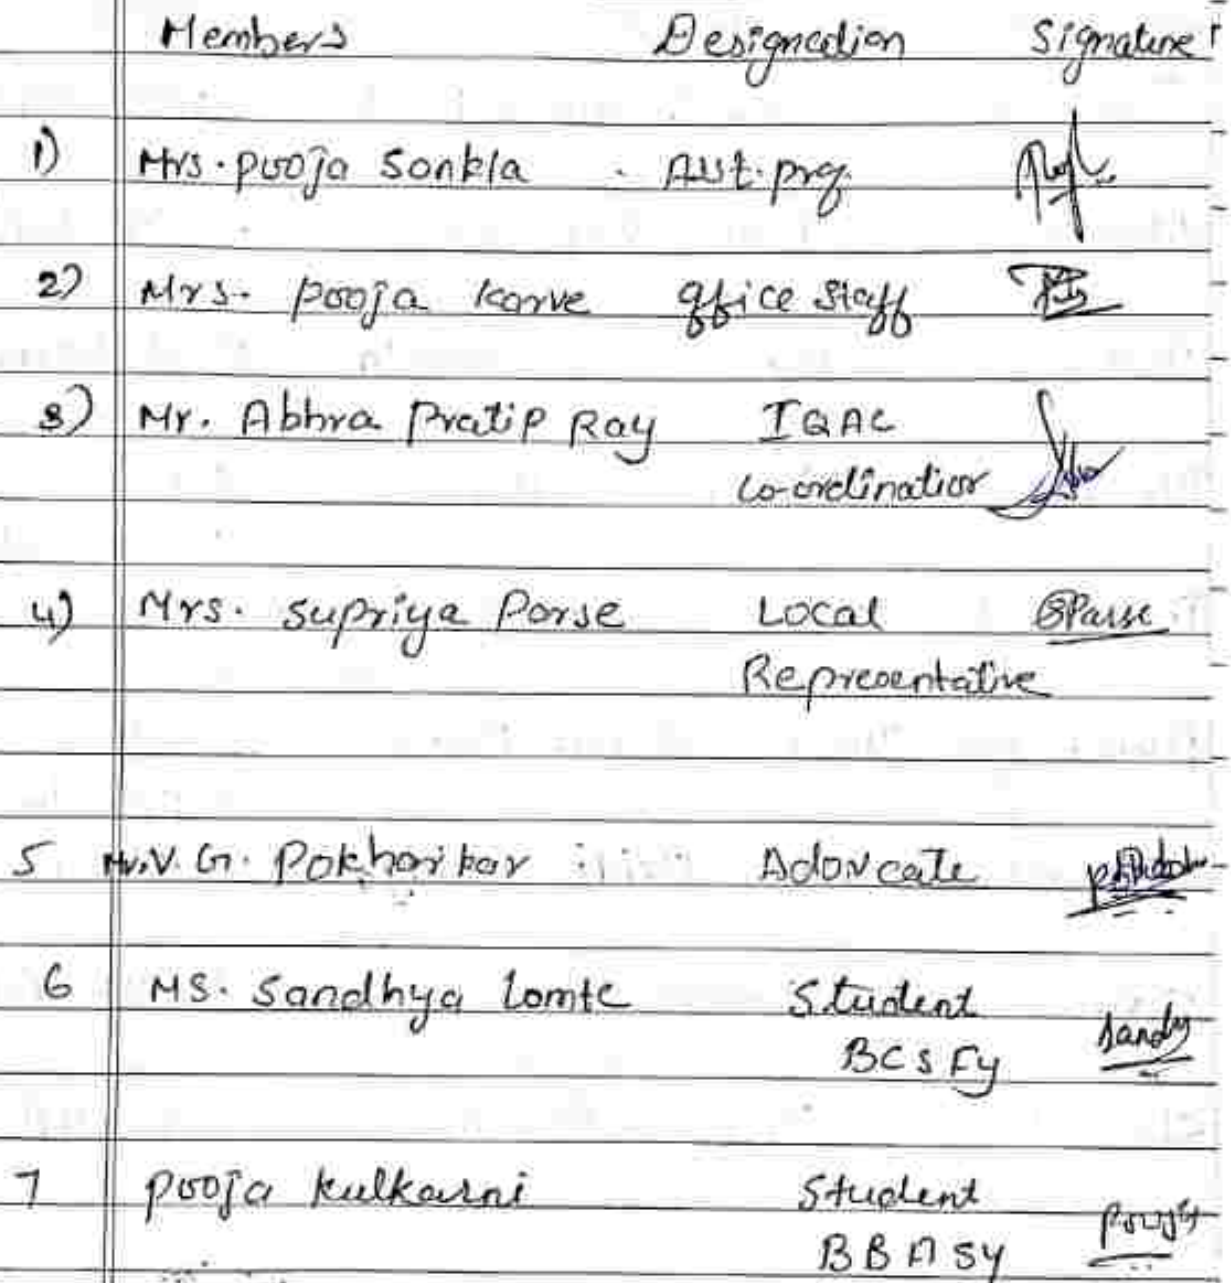 Members Designation Signature
1) Mrs. pooja Sonkla Asst. prof.
2) Mrs. pooja karve office staff
3) Mr. Abhra Pratip Ray IQAC
co-ordination
4) Mrs. Supriya Porse Local SParse
Representative
5 Mr. V. G. Pokharikar Adovcate
6 MS. Sandhya Lomte Student
BCS Fy Sandy
7 pooja kulkarni Student
BBA Sy pooja